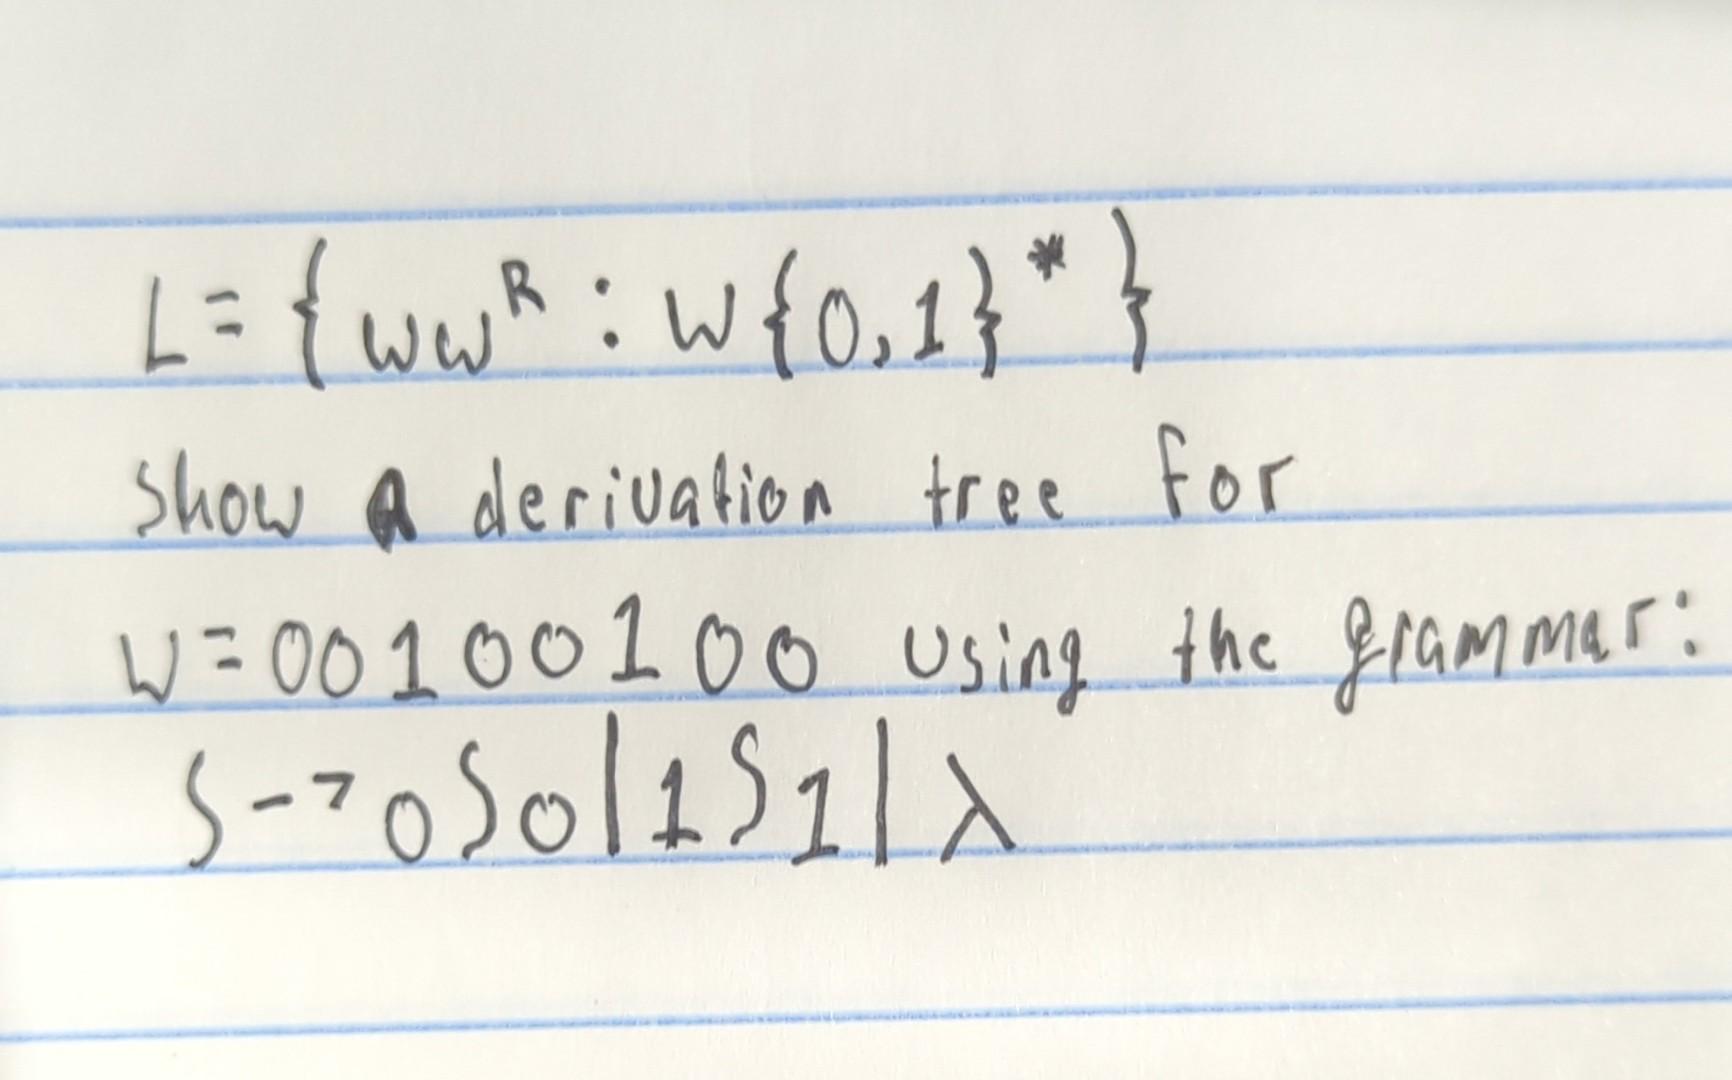 L = { ww^R : w{0,1}* }
Show a derivation tree for
w=00100100 using the grammar:
S -> 0S0|1S1|λ